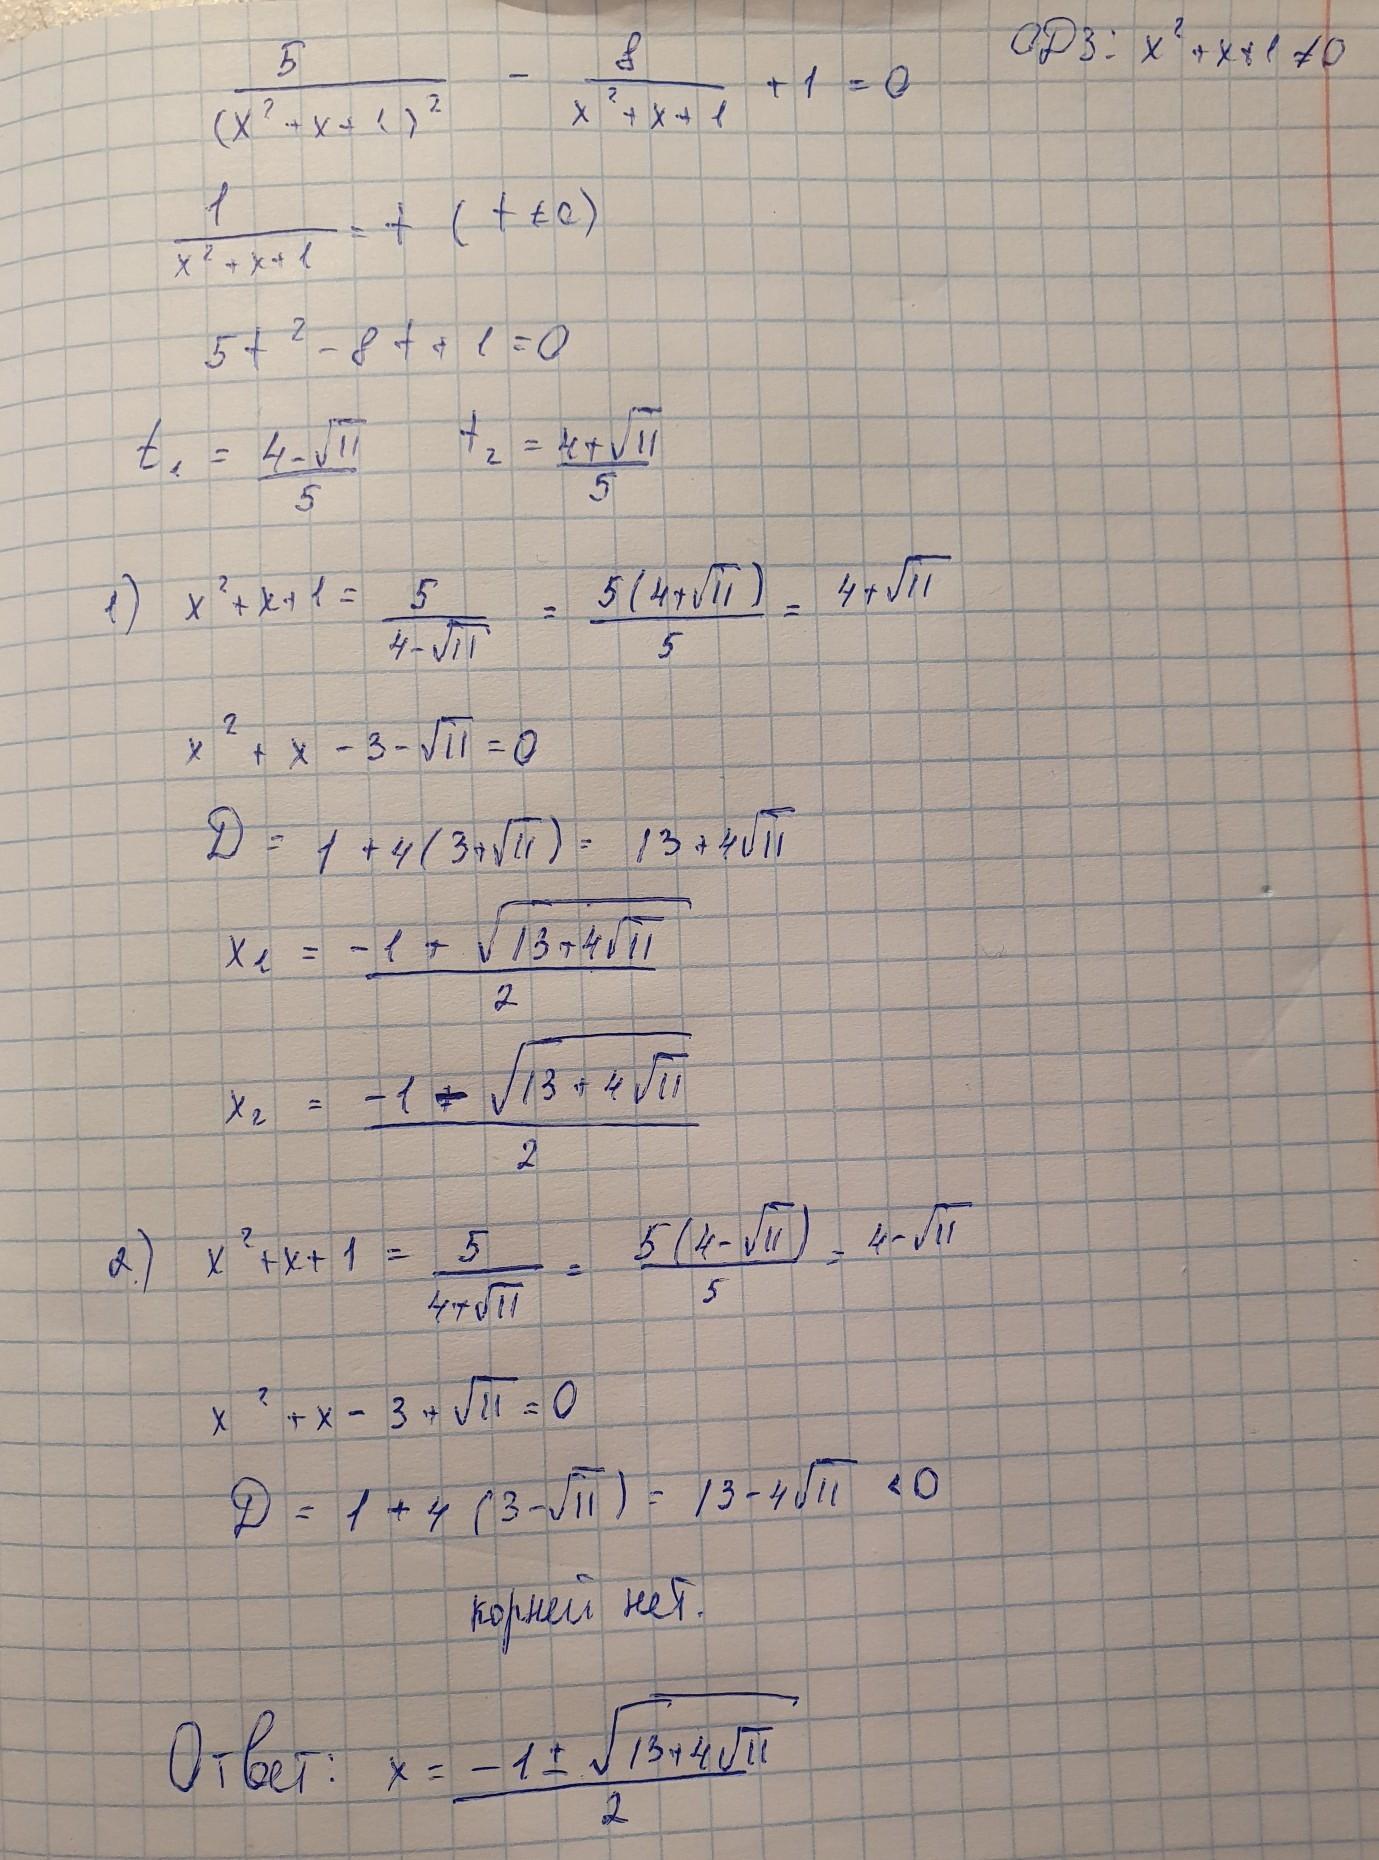 5/(x²+x+1)² - 8/(x²+x+1) + 1 = 0 ОДЗ: x²+x+1 ≠ 0
1/(x²+x+1) = t (t ≠ 0)
5t² - 8t + 1 = 0
t₁ = (4-√11)/5 t₂ = (4+√11)/5
1) x²+x+1 = 5/(4-√11) = 5(4+√11)/5 = 4+√11
x² + x - 3 - √11 = 0
D = 1 + 4(3+√11) = 13+4√11
x₁ = (-1 + √(13+4√11))/2
x₂ = (-1 - √(13+4√11))/2
2) x²+x+1 = 5/(4+√11) = 5(4-√11)/5 = 4-√11
x² + x - 3 + √11 = 0
D = 1 + 4(3-√11) = 13-4√11 < 0
корней нет.
Ответ: x = (-1 ± √(13+4√11))/2